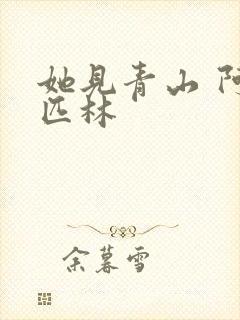 她见青山 阿
匹林
余暮雪